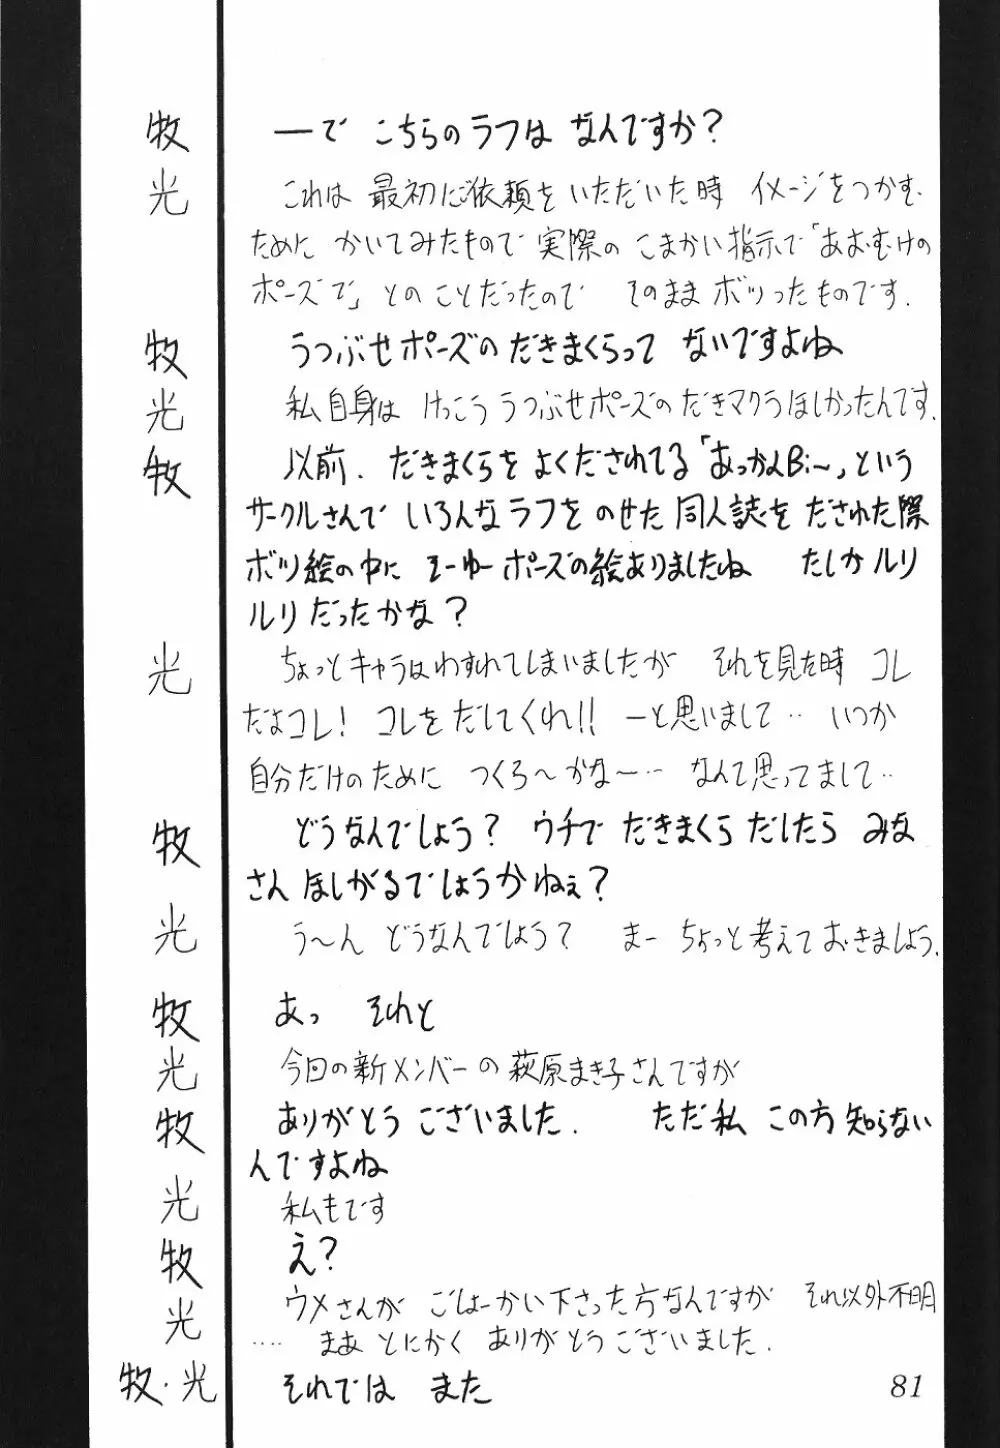 牧 ―で こちらのラフは なんですか?
光 これは 最初にご依頼を いただいた時 イメージをつかむ
ために かいてみたもので 実際の こまかい指示で「あおむけの
ポーズで」とのことだったので そのまま ボツったものです.
牧 うつぶせポーズの だきまくらって ないですよね
光 私自身は けっこう うつぶせポーズの だきマクラほしかったんです.
牧 以前. だきまくらを よくだされてる「あっかんBi〜」という
サークルさんで いろんなラフを のせた 同人誌を だされた際
ボツ絵の中に そーゆーポーズの絵ありましたね たしか ルリ
ルリだったかな?
光 ちょっとキャラはわすれてしまいましたが それを見た時 コレ
だよコレ! コレを だしてくれ!! ーと思いまして‥ いつか
自分だけのために つくろ〜かな〜‥ なんて思ってまして‥
牧 どうなんでしょう? ウチで だきまくら だしたら みな
さん ほしがるでしょうかねぇ?
光 う〜ん どうなんでしょう? まー ちょっと考えておきましょう.
牧 あっ それと
光 今回の新メンバーの 萩原まき子さんですが
牧 ありがとう ございました. ただ私 この方 知らない
んですよね
光 私もです
牧 え?
光 ウメさんが ごしょーかい下さった方なんですが それ以外不明
‥‥ まあ とにかく ありがとうございました.
牧・光 それでは また
81